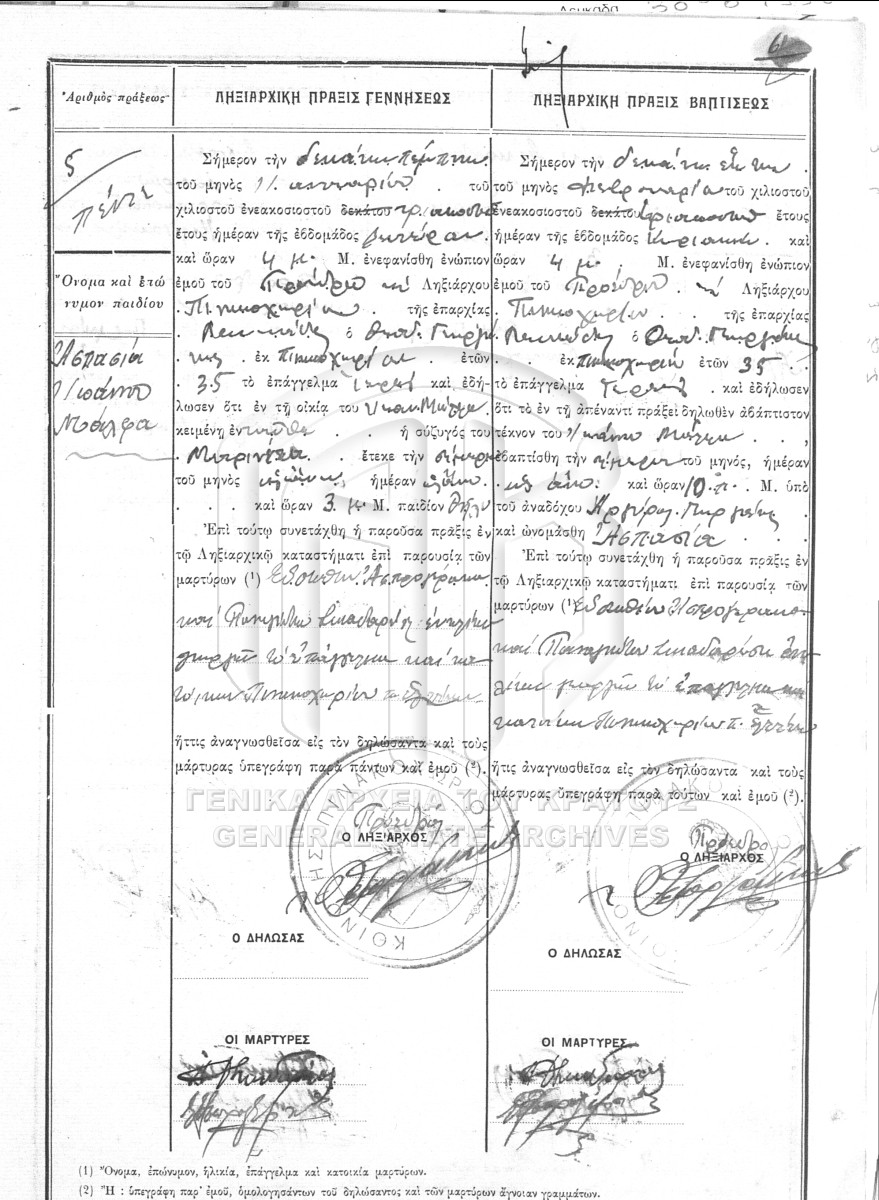 Λευκάδα
61
Ἀριθμὸς πράξεως
5
πέντε
Ὄνομα καὶ ἐπώνυμον παιδίου
Ἀσπασία
Ἰωάννου
ΛΗΞΙΑΡΧΙΚΗ ΠΡΑΞΙΣ ΓΕΝΝΗΣΕΩΣ
Σήμερον τὴν δεκάτην πέμπτην
τοῦ μηνὸς Ἰαννουαρίου . τοῦ
χιλιοστοῦ ἐνεακοσιοστοῦ δεκάτου τριακοστοῦ
ἔτους ἡμέραν τῆς ἑβδομάδος Δευτέραν .
καὶ ὥραν 4 μ. Μ. ἐνεφανίσθη ἐνώπιον
ἐμοῦ τοῦ Προέδρου Ληξιάρχου
. Πινακοχωρίου . . τῆς ἐπαρχίας
. Λευκάδος ὁ Θεοδ. Γεωργά
κης . ἐκ Πινακοχωρίου . ἐτῶν
. 35 τὸ ἐπάγγελμα Ἱερεὺς καὶ ἐδή-
λωσεν ὅτι ἐν τῇ οἰκίᾳ του
κειμένῃ ἐνταῦθα . . ἡ σύζυγός του
ἔτεκε τὴν σήμερον
τοῦ μηνὸς ἡμέραν
. . . καὶ ὥραν 3 μ. Μ. παιδίον θῆλυ
Ἐπὶ τούτῳ συνετάχθη ἡ παροῦσα πρᾶξις ἐν
τῷ Ληξιαρχικῷ καταστήματι ἐπὶ παρουσίᾳ τῶν
μαρτύρων (¹) Ἀσπρογέρακα
καὶ Παναγιώτου
τὸ ἐπάγγελμα καὶ κα
Πινακοχωρίου
ἥτις ἀναγνωσθεῖσα εἰς τὸν δηλώσαντα καὶ τοὺς
μάρτυρας ὑπεγράφη παρὰ πάντων καὶ ἐμοῦ (²).
Πρόεδρος
Ο ΛΗΞΙΑΡΧΟΣ
Ο ΔΗΛΩΣΑΣ
ΟΙ ΜΑΡΤΥΡΕΣ
ΛΗΞΙΑΡΧΙΚΗ ΠΡΑΞΙΣ ΒΑΠΤΙΣΕΩΣ
Σήμερον τὴν δεκάτην ἕκτην .
τοῦ μηνὸς Φεβρουαρίου τοῦ χιλιοστοῦ
ἐνεακοσιοστοῦ δεκάτου τριακοστοῦ ἔτους
ἡμέραν τῆς ἑβδομάδος Κυριακὴν . καὶ
ὥραν 4 μ. Μ. ἐνεφανίσθη ἐνώπιον
ἐμοῦ τοῦ Προέδρου Ληξιάρχου
Πινακοχωρίου . . τῆς ἐπαρχίας
Λευκάδος ὁ Θεοδ. Γεωργάκης
. ἐκ Πινακοχωρίου ἐτῶν 35 . .
τὸ ἐπάγγελμα Ἱερεὺς . καὶ ἐδήλωσεν
ὅτι τὸ ἐν τῇ ἀπέναντι πράξει δηλωθὲν ἀβάπτιστον
τέκνον τοῦ Ἰωάννου . . ,
ἐβαπτίσθη τὴν σήμερον τοῦ μηνός, ἡμέραν
. ὡς ἄνω . καὶ ὥραν 10 π. Μ. ὑπὸ
τοῦ ἀναδόχου
καὶ ὠνομάσθη Ἀσπασία . . .
Ἐπὶ τούτῳ συνετάχθη ἡ παροῦσα πρᾶξις ἐν
τῷ Ληξιαρχικῷ καταστήματι ἐπὶ παρουσίᾳ τῶν
μαρτύρων (¹)
καὶ Παναγιώτου
τὸ ἐπάγγελμα καὶ
Πινακοχωρίου
ἥτις ἀναγνωσθεῖσα εἰς τὸν δηλώσαντα καὶ τοὺς
μάρτυρας ὑπεγράφη παρὰ τούτων καὶ ἐμοῦ (²).
Πρόεδρος
Ο ΛΗΞΙΑΡΧΟΣ
Ο ΔΗΛΩΣΑΣ
ΟΙ ΜΑΡΤΥΡΕΣ
ΓΕΝΙΚΑ ΑΡΧΕΙΑ ΤΟΥ ΚΡΑΤΟΥΣ
GENERAL STATE ARCHIVES
(1) Ὄνομα, ἐπώνυμον, ἡλικία, ἐπάγγελμα καὶ κατοικία μαρτύρων.
(2) Ἢ : ὑπεγράφη παρ' ἐμοῦ, ὁμολογησάντων τοῦ δηλώσαντος καὶ τῶν μαρτύρων ἄγνοιαν γραμμάτων.